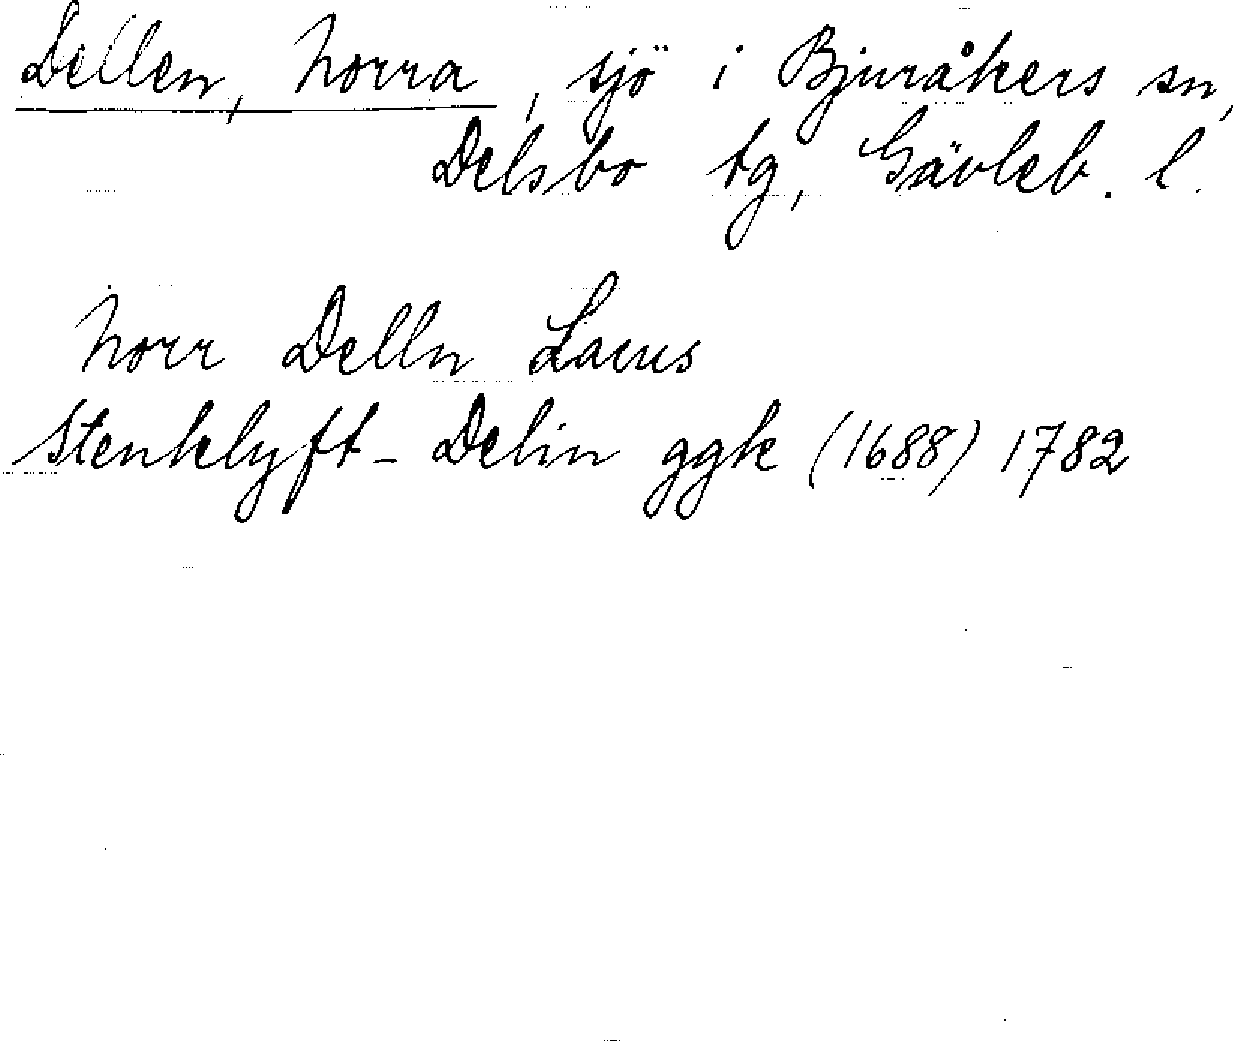 Dellen, Norra, sjö i Bjuråkers sn,
Delsbo tg, Gävleb. l.
Norr Delln Lacus
Stenklyft-Delin ggk (1688) 1782